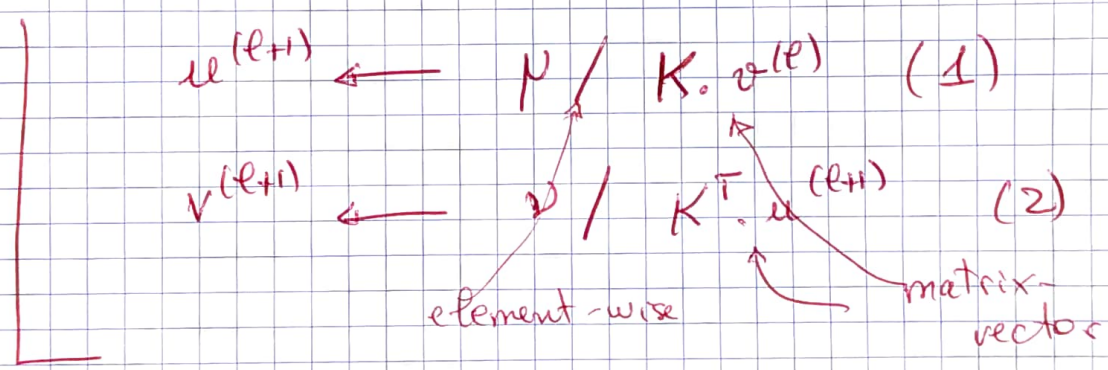 u^(ℓ+1) ← μ / K . v^(ℓ) (1)
v^(ℓ+1) ← ν / K^T . u^(ℓ+1) (2)
element-wise
matrix-
vector